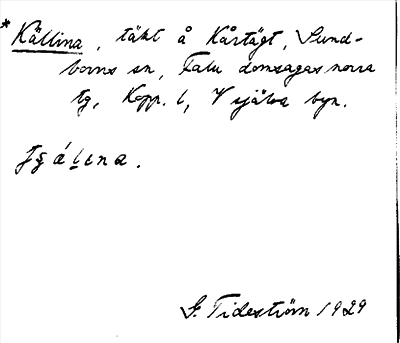 * Källina, täkt å Kårtägt, Sund-
borns sn, Falu domsagas norra
tg, Kopp. l, V själva byn.
G. Tideström 1929